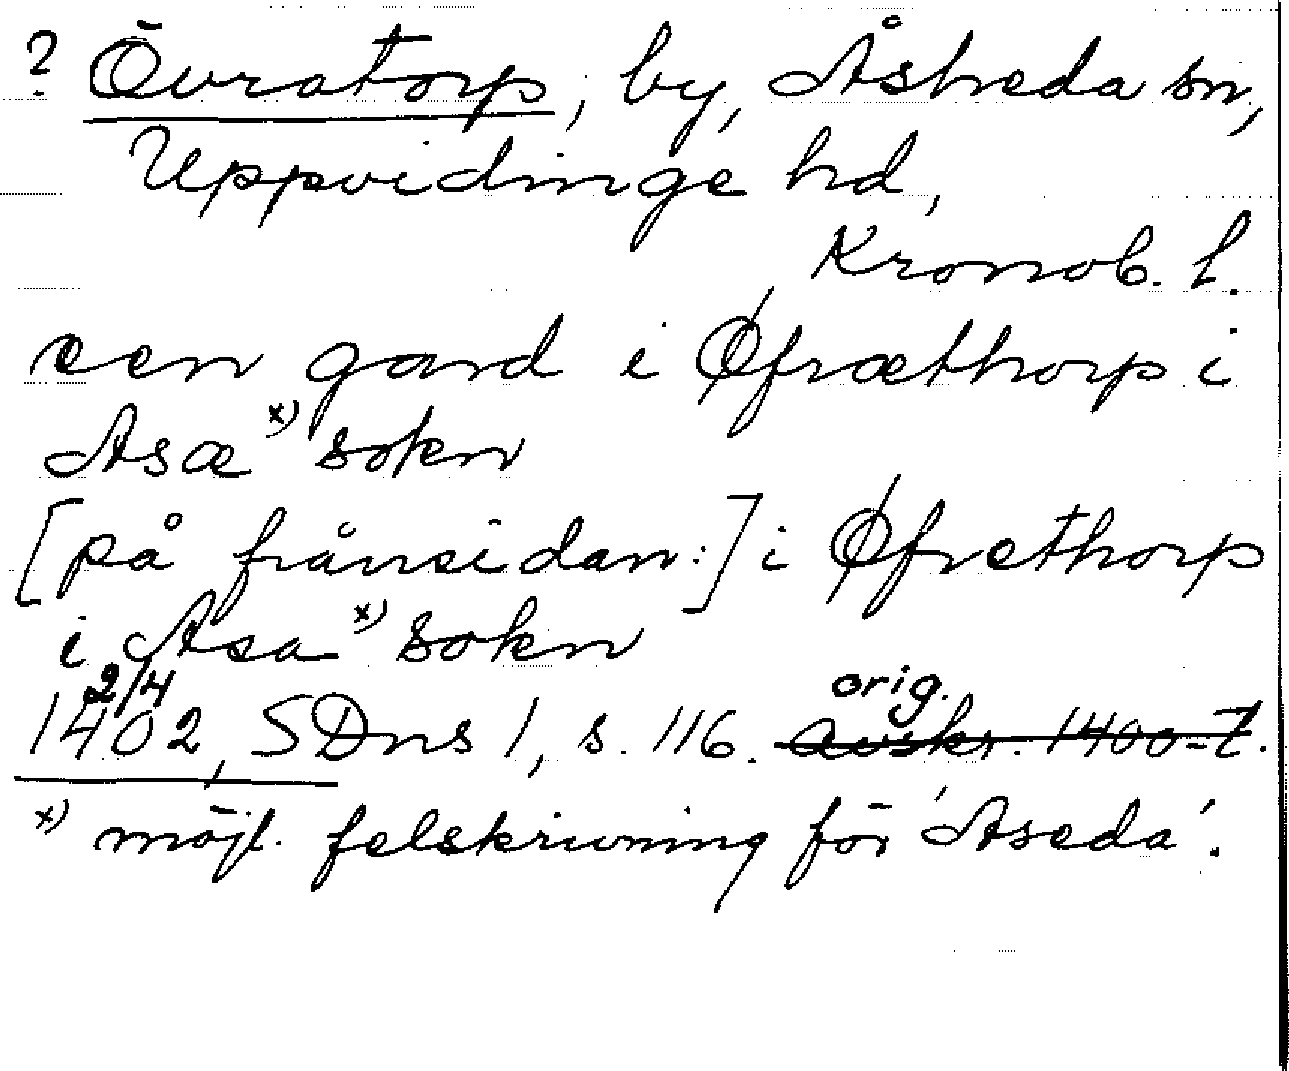 ? Övratorp, by, Åsheda sn,
Uppvidinge hd,
Kronob. l.
een gard i Øfræthorp i
Asæ x) sokn
[på frånsidan:] i Øfrethorp
i Asa x) sokn
1402 2/4, SDns 1, s. 116. orig. avskr. 1400-t.
x) möjl. felskrivning för 'Aseda'.